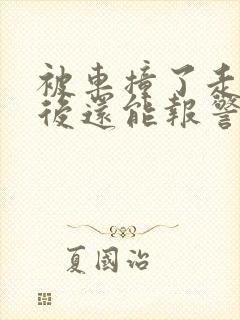 被車撞了走
後還能報警
夏國治